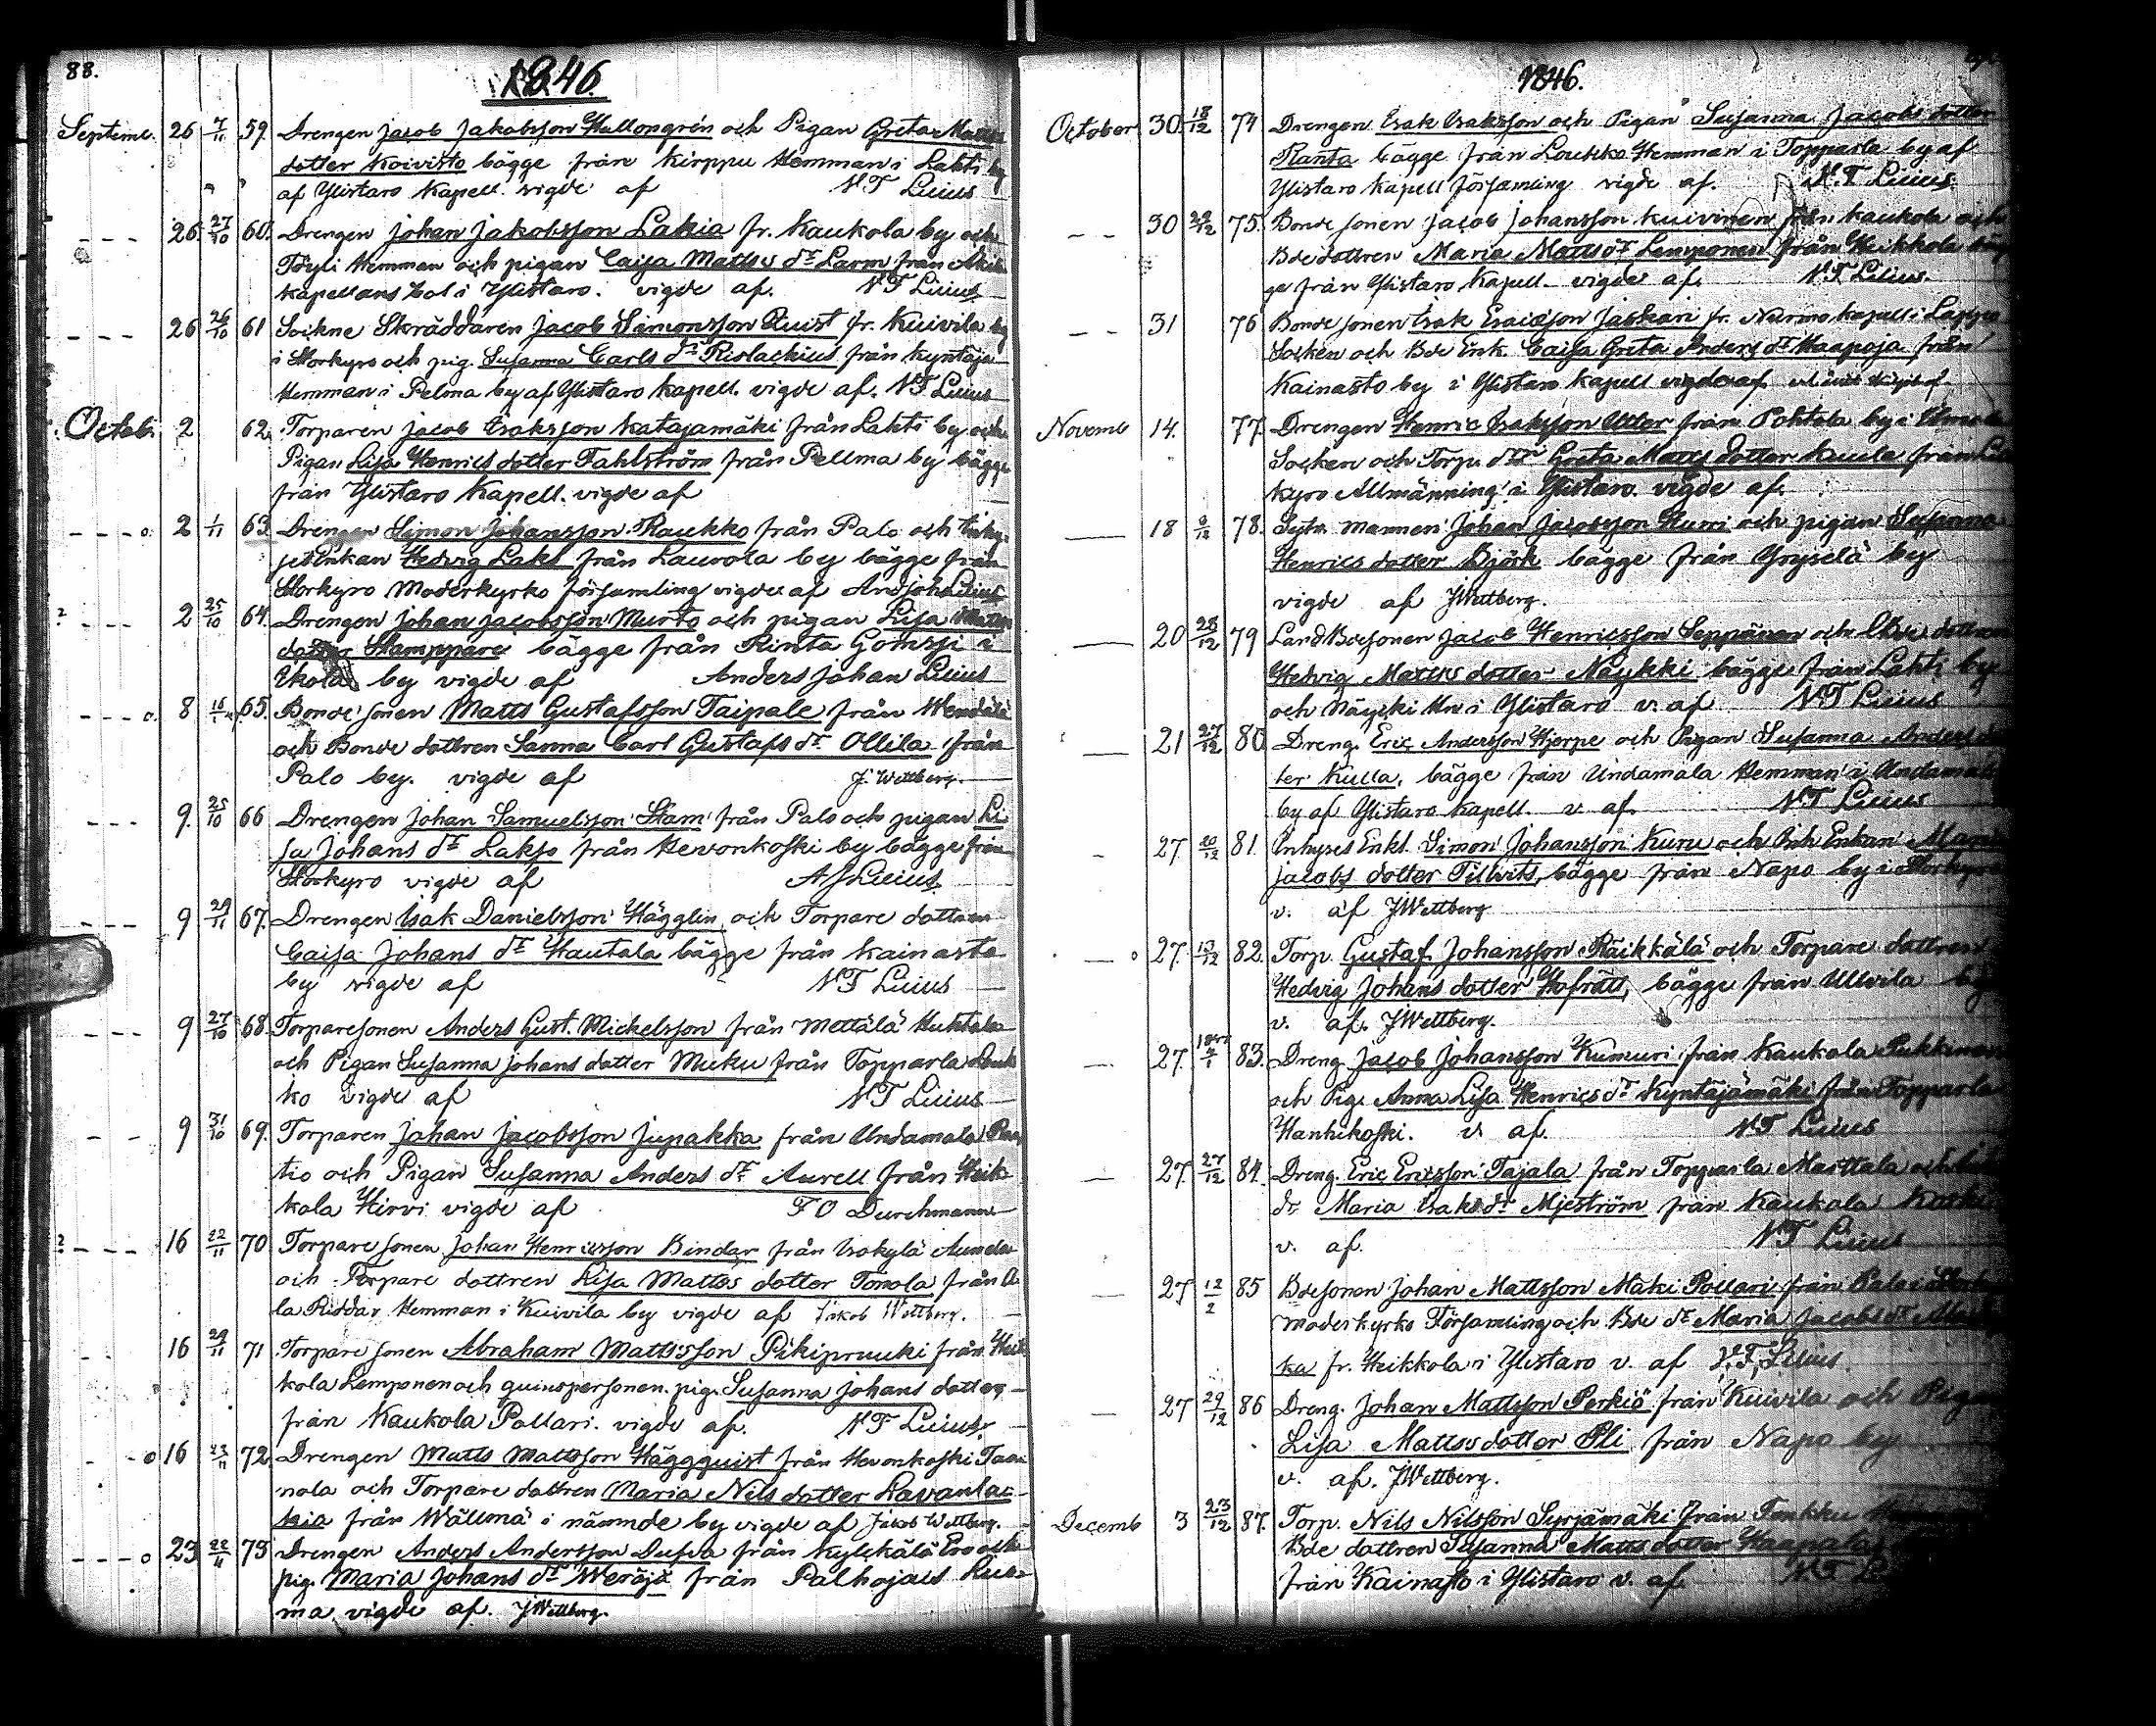 88.
1846.
Septemb. 26 7/11 59. Drengen Jacob Jakobsson Hallongrén och Pigan Greta Matts
dotter Koivisto bägge från Kirppu Hemman i Lahti by
af Ylistaro Kapell. vigde af N T Lilius
26 27/10 60. Drengen Johan Jakobsson Lakia fr. Kaukola by och
Töyli Hemman och pigan Caisa Matts dr Larm från
Kapellans Bol i Ylistaro. vigde af. N T Lilius
26 26/10 61 Sockne Skräddaren Jacob Simonsson Quist fr. Kuivila by
i Storkyro och pig. Susanna Carls dr Riolachius från Kyntäjä
Hemman i Pelma by af Ylistaro Kapell. vigde af. N T Lilius
Octob. 2 62. Torparen Jacob Isaksson Katajamäki från Lahti by och
Pigan Lisa Henrics dotter Fahlström från Pellma by bägge
från Ylistaro Kapell. vigde af
2 1/11 63. Drengen Simon Johansson Raukko från Palo och Inhy-
ses Enkan Hedvig Laks från Laurola by bägge från
Storkyro Moderkyrko församling vigde af And Joh Lilius
2 25/10 64. Drengen Johan Jacobsson Murto och pigan Lisa Matts
dotter Stamppare bägge från Rinta Gomssi i
Ikola by vigde af Anders Johan Lilius
8 65. Bonde sonen Matts Gustafsson Taipale från Wendälä
och Bonde dottren Sanna Carl Gustafs dr Ollila från
Palo by. vigde af J. Wettberg.
9. 25/10 66 Drengen Johan Samuelsson Stam från Palo och pigan Li-
sa Johans dr Lakso från Hevonkoski by bägge från
Storkyro vigde af A J Lilius
9 29/11 67. Drengen Isak Danielsson Hägglin och Torpare dottren
Caisa Johans dr Hautala bägge från Kainasto
by vigde af N T Lilius
9 27/10 68. Torparesonen Anders Gust. Mickelsson från Mettälä Huhtala
och Pigan Susanna Johans dotter Muku från Topparla Louk
ko vigde af N T Lilius
9 31/10 69. Torparen Johan Jacobsson Jupakka från Undamala
tio och Pigan Susanna Anders dr Aurell från Heik
kola Hirvi vigde af F O Durchmann
16 22/11 70 Torpare sonen Johan Henricsson Bindar från Isokylä
och Torpare dottren Lisa Matts dotter Tönola från A
la Riddar Hemman i Kuivila by vigde af Jakob Wettberg.
16 29/11 71 Torpare sonen Abraham Mattsson Pikipruuki från Heik
kola Lemponen och quinspersonen. pig. Susanna Johans dotter
från Kaukola Pollari. vigde af. N T Lilius.
16 23/11 72. Drengen Matts Mattsson Häggquist från Hevonkoski
nola och Torpare dottren Maria Nils dotter Lavanlac-
kia från Wällmä i nämnde by vigde af Jakob Wettberg.
23 22/4 73 Drengen Anders Andersson Dufva från Kylckälä Ero och
pig. Maria Johans dr Weräjä från Palhojais Luo-
ma vigde af. J Wettberg.
1846.
October 30 18/12 74 Drengen Isak Isaksson och Pigan Susanna Jacobs dotter
Ranta bägge från Loukko Hemman i Topparla by af
Ylistaro Kapell församling vigde af. N. T Lilius.
30 29/12 75. Bonde sonen Jacob Johansson Kuivinen från Kaukola och
Bde dottren Maria Matts dr Lemponen från Heikkola bäg
ge från Ylistaro Kapell vigde af. N T Lilius.
31 76 Bonde sonen Isak Esaiasson Jaskari fr. Nurmo Kapell i Lappo
Socken och Bde Enk. Caisa Greta Anders dr Haapoja från
Kainasto by i Ylistaro Kapell vigde af
Novemb 14. 77. Drengen Henric Isaksson Utter från Pohtola by i
Socken och Torp. dr Greta Matts dotter Kuula från
kyro Allmänning i Ylistaro. vigde af.
18 78. Sytn. mannen Johan Jacobsson Hurri och pigan Susanna
Henrics dotter Björk bägge från Yryselä by
vigde af J Wettberg.
20 28/12 79 Land Bdesonen Jacob Henricsson Seppänen och Bde dottren
Hedvig Matts dotter Näykki bägge från Lahti by
och Näycki Hn i Ylistaro v. af N T Lilius
21 27/12 80 Dreng. Eric Andersson Hjerpe och Pigan Susanna Anders dot
ter Kulla, bägge från Undamala Hemman i Undamala
by af Ylistaro Kapell. v. af. N T Lilius
27. 20/12 81. Inhyses Enkl. Simon Johansson Kuru och Inh Enkan Maria
Jacobs dotter Tillvits, bägge från Napo by i Storkyro
v. af J Wettberg
27. 13/12 82. Torp. Gustaf Johansson Räikkälä och Torpare dottren
Hedvig Johans dotter Hofrätt, bägge från Ullvila by
v. af. J Wettberg.
27. 83. Dreng Jacob Johansson Kumuri från Kaukola Pukkinen
och Pig. Anna Lisa Henrics dr Kyntäjämäki från Topparla
Hanhikoski. v. af. N T Lilius
27. 27/12 84. Dreng. Eric Ericsson Tajala från Topparla Marttala och
dr Maria Isaks dr Mjeström från Kaukola
v. af. N T Lilius
27 12/2 85 Bdesonen Johan Mattsson Mäki Pollari från Palo i Stor
Moderkyrko Församling och Bde dr Maria Jacobs dr
ka fr. Heikkola i Ylistaro v. af N. T. Lilius
27 29/12 86 Dreng. Johan Mattsson Perkiö från Kuivila och Pigan
Lisa Matts dotter Pli från Napo by
v. af. J Wettberg.
Decemb 3 23/12 87. Torp. Nils Nilsson Syrjämäki från Tonkku
Bde dottren Susanna Matts dotter Haapala
från Kainasto i Ylistaro v. af N T L